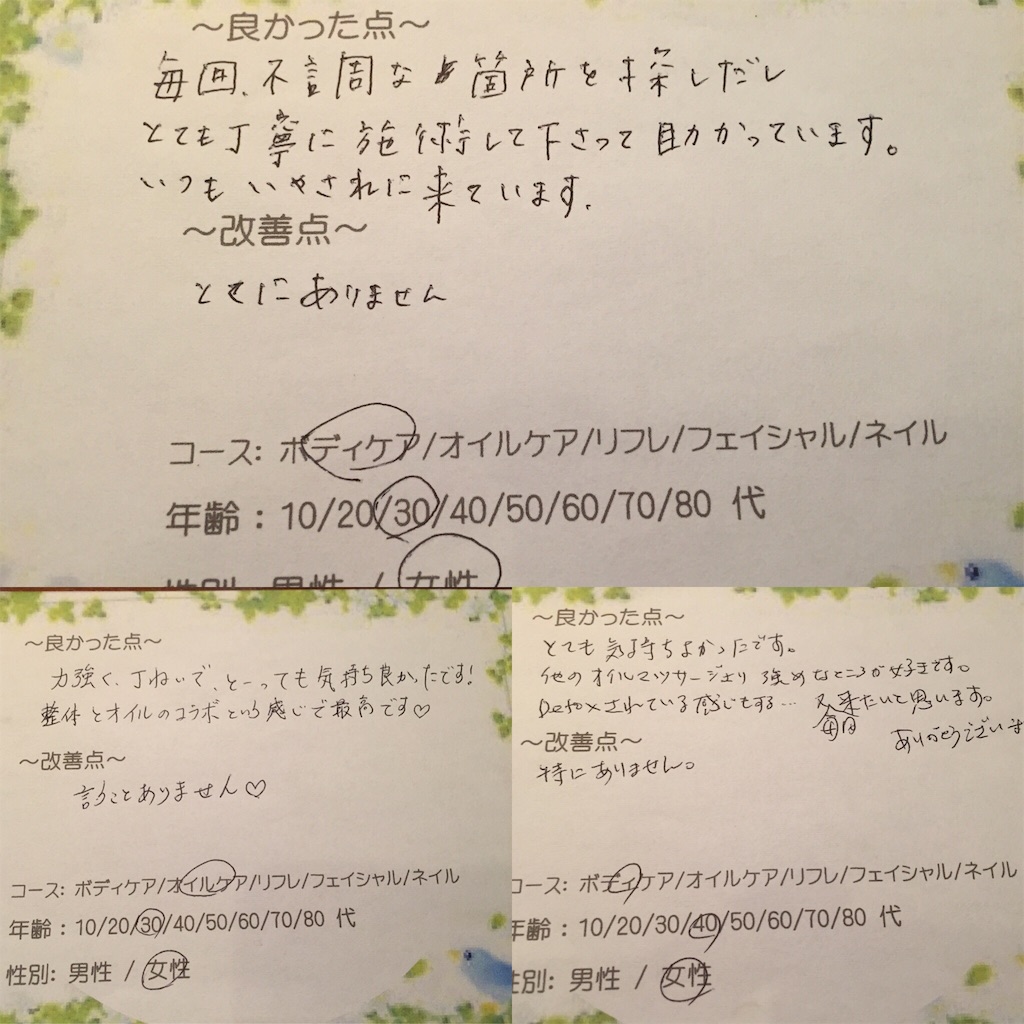 〜良かった点〜
毎回、不調な箇所を探しだし
とても丁寧に施術して下さって助かっています。
いつもいやされに来ています。
〜改善点〜
とくにありません
コース: ボディケア/オイルケア/リフレ/フェイシャル/ネイル
年齢：10/20/30/40/50/60/70/80 代
性別: 男性 / 女性
〜良かった点〜
力強く、丁ねいで、とーっても気持ち良かったです!
整体とオイルのコラボという感じで最高です♡
〜改善点〜
言うことありません♡
コース: ボディケア/オイルケア/リフレ/フェイシャル/ネイル
年齢：10/20/30/40/50/60/70/80 代
性別: 男性 / 女性
〜良かった点〜
とても気持ちよかったです。
他のオイルマッサージより強めなところが好きです。
Detoxされている感じもする… 又来たいと思います。
毎日
ありがとうございま
〜改善点〜
特にありません。
コース: ボディケア/オイルケア/リフレ/フェイシャル/ネイル
年齢：10/20/30/40/50/60/70/80 代
性別: 男性 / 女性